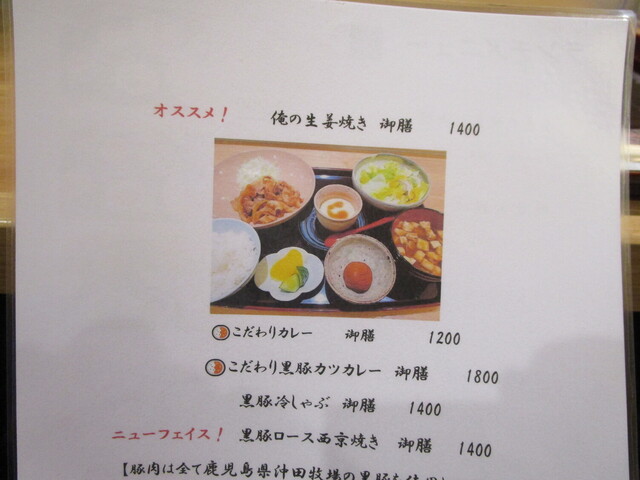 オススメ! 俺の生姜焼き 御膳 1400
こだわりカレー 御膳 1200
こだわり黒豚カツカレー 御膳 1800
黒豚冷しゃぶ 御膳 1400
ニューフェイス! 黒豚ロース西京焼き 御膳 1400
【豚肉は全て鹿児島県沖田牧場の黒豚を使用